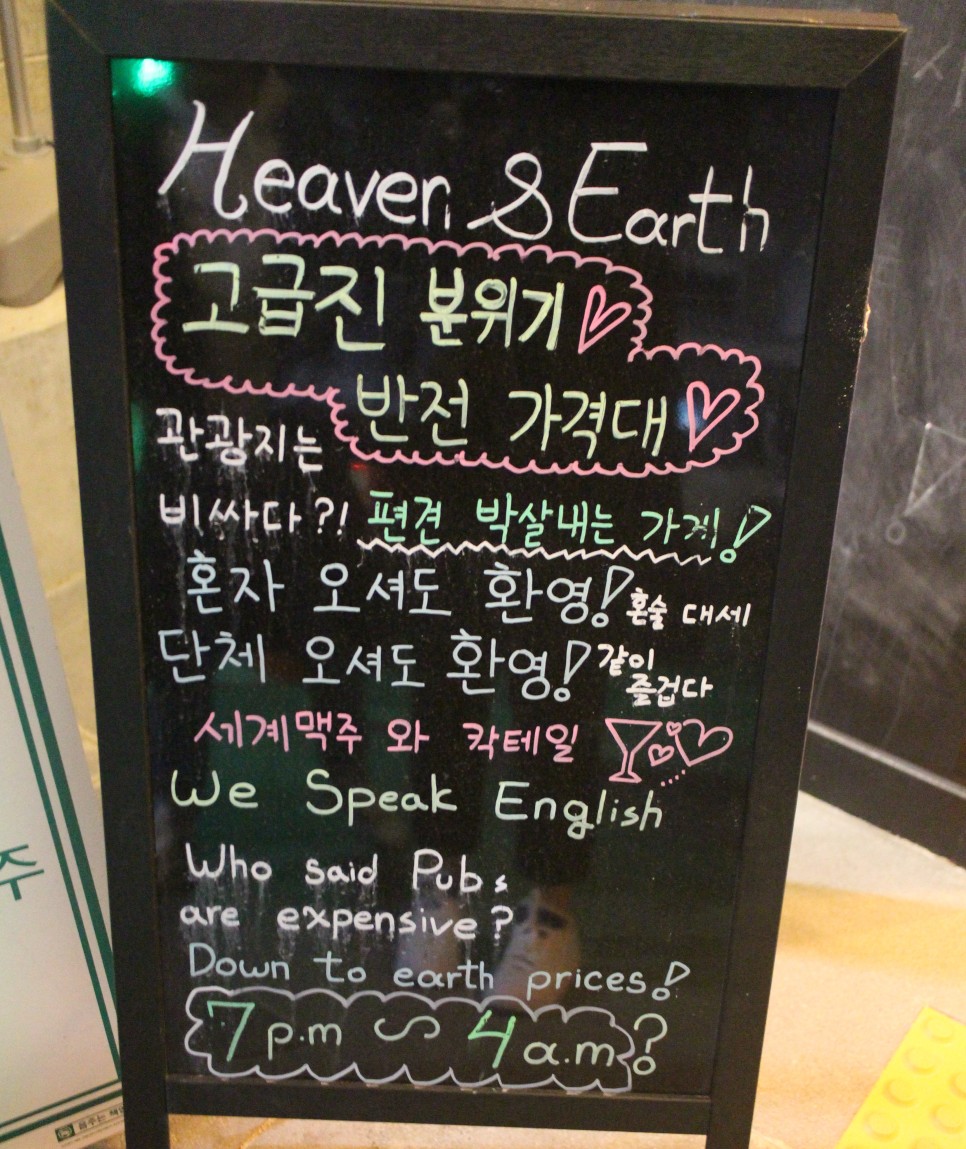 Heaven & Earth
고급진 분위기
반전 가격대
관광지는
비싸다?! 편견 박살내는 가게!
혼자 오셔도 환영! 혼술 대세
단체 오셔도 환영! 같이
즐겁다
세계맥주 와 칵테일
We Speak English
Who said Pubs
are expensive?
Down to earth prices!
7 p.m ~ 4 a.m?
주